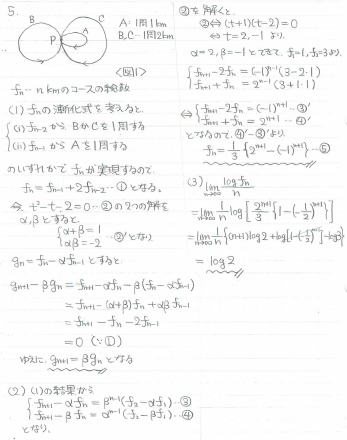 5.
B
C
P
A
A: 1周1km
B, C…1周2km
<図1>
fn…n kmのコースの総数
(1) fnの漸化式を考えると、
(i) fn-2から BかCを1周する
(ii) fn-1から Aを1周する
のいずれかで fnが実現するので、
fn = fn-1 + 2fn-2 … ① となる。
今 t²-t-2=0 … ② の2つの解を
α, βとすると、
α+β=1
αβ=-2
…②'となり
gn = fn - αfn-1 とすると
gn+1 - βgn = fn+1 - αfn - β(fn - αfn-1)
= fn+1 - (α+β)fn + αβfn-1
= fn+1 - fn - 2fn-1
= 0 (∵①)
ゆえに gn+1 = βgn となる
(2) (1)の結果から
fn+1 - αfn = β^n-1(f2 - αf1) … ③
fn+1 - βfn = α^n-1(f2 - βf1) … ④
となり、
②を解くと、
②⇔(t+1)(t-2)=0
⇔ t=2, -1 より、
α=2, β=-1 とできて、f1=1, f2=3より、
fn+1 - 2fn = (-1)^n-1(3-2·1)
fn+1 + fn = 2^n-1(3+1·1)
⇔ fn+1 - 2fn = (-1)^n+1 … ③'
fn+1 + fn = 2^n+1 … ④'
となるので、④'-③'より、
fn = 1/3 {2^n+1 - (-1)^n+1} … ⑤
(3) lim n→∞ log fn / n
= lim n→∞ 1/n log [ 2^n+1/3 {1-(-1/2)^n+1} ]
= lim n→∞ 1/n {(n+1)log2 + log{1-(-1/2)^n+1} - log3}
= log 2